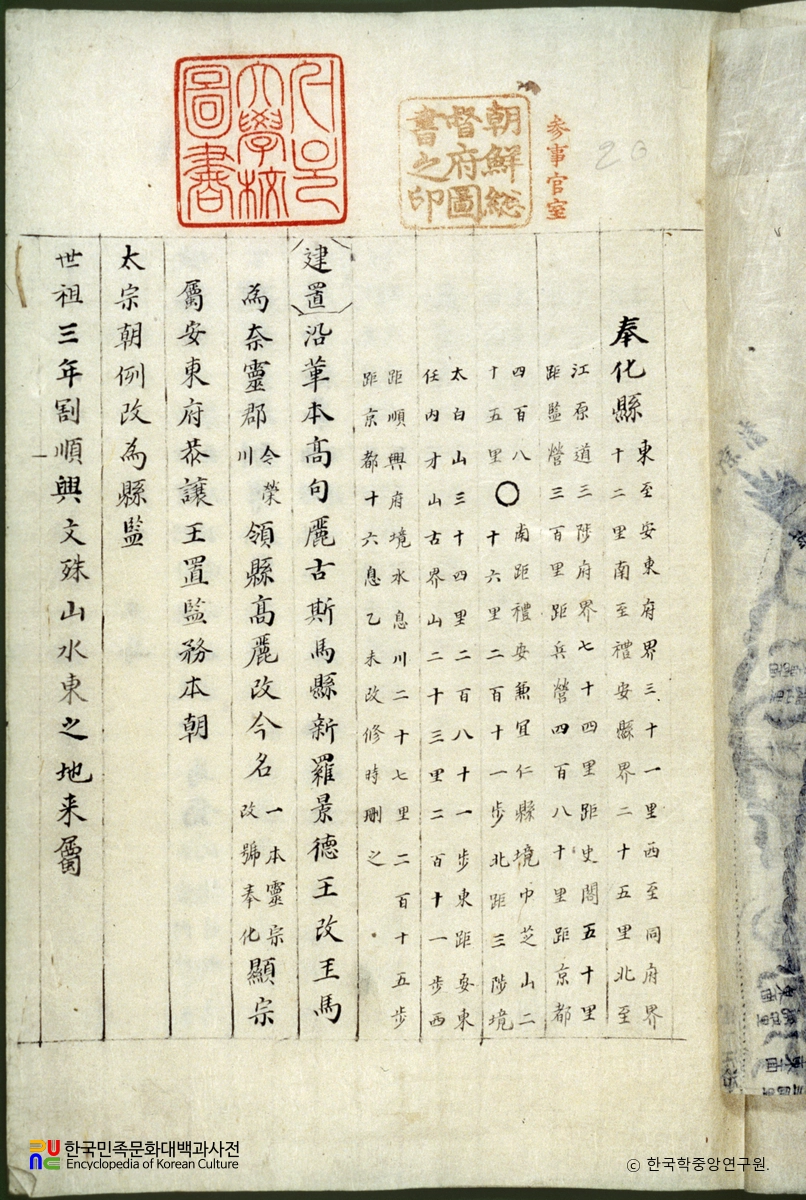 参事官室
朝鮮総
督府圖
書之印
大學校
圖書
奉化縣 東至安東府界三十一里西至同府界
十二里南至禮安縣界二十五里北至
江原道三陟府界七十四里距史閣五十里
距監營三百里距兵營四百八十里距京都
四百八
十五里
○ 南距禮安兼宜仁縣境巾芝山二
十六里二百十一步北距三陟境
太白山三十四里二百八十一步東距安東
任内才山古界山二十三里二百十一步西
距順興府境水息川二十七里二百十五步
距京都十六息乙未改修時刪之
建置沿革本高句麗古斯馬縣新羅景德王改玉馬
為奈靈郡今榮川領縣高麗改今名一本靈宗改號奉化顯宗
屬安東府恭讓王置監務本朝
太宗朝例改為縣監
世祖三年割順興文殊山水東之地来屬
한국민족문화대백과사전
Encyclopedia of Korean Culture
ⓒ 한국학중앙연구원.